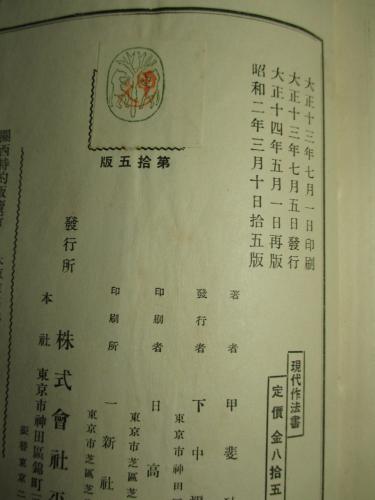 大正十三年七月一日印刷
大正十三年七月五日發行
大正十四年五月一日再版
昭和二年三月十日拾五版
第拾五版
現代作法書
定價 金八拾五
著者 甲斐
發行者 下中
東京市神田
印刷者 日高
東京市芝區芝
印刷所 一新社
東京市芝區芝
發行所
本社 株式會社
東京市神田區錦町
振替東京二
關西特約販賣所